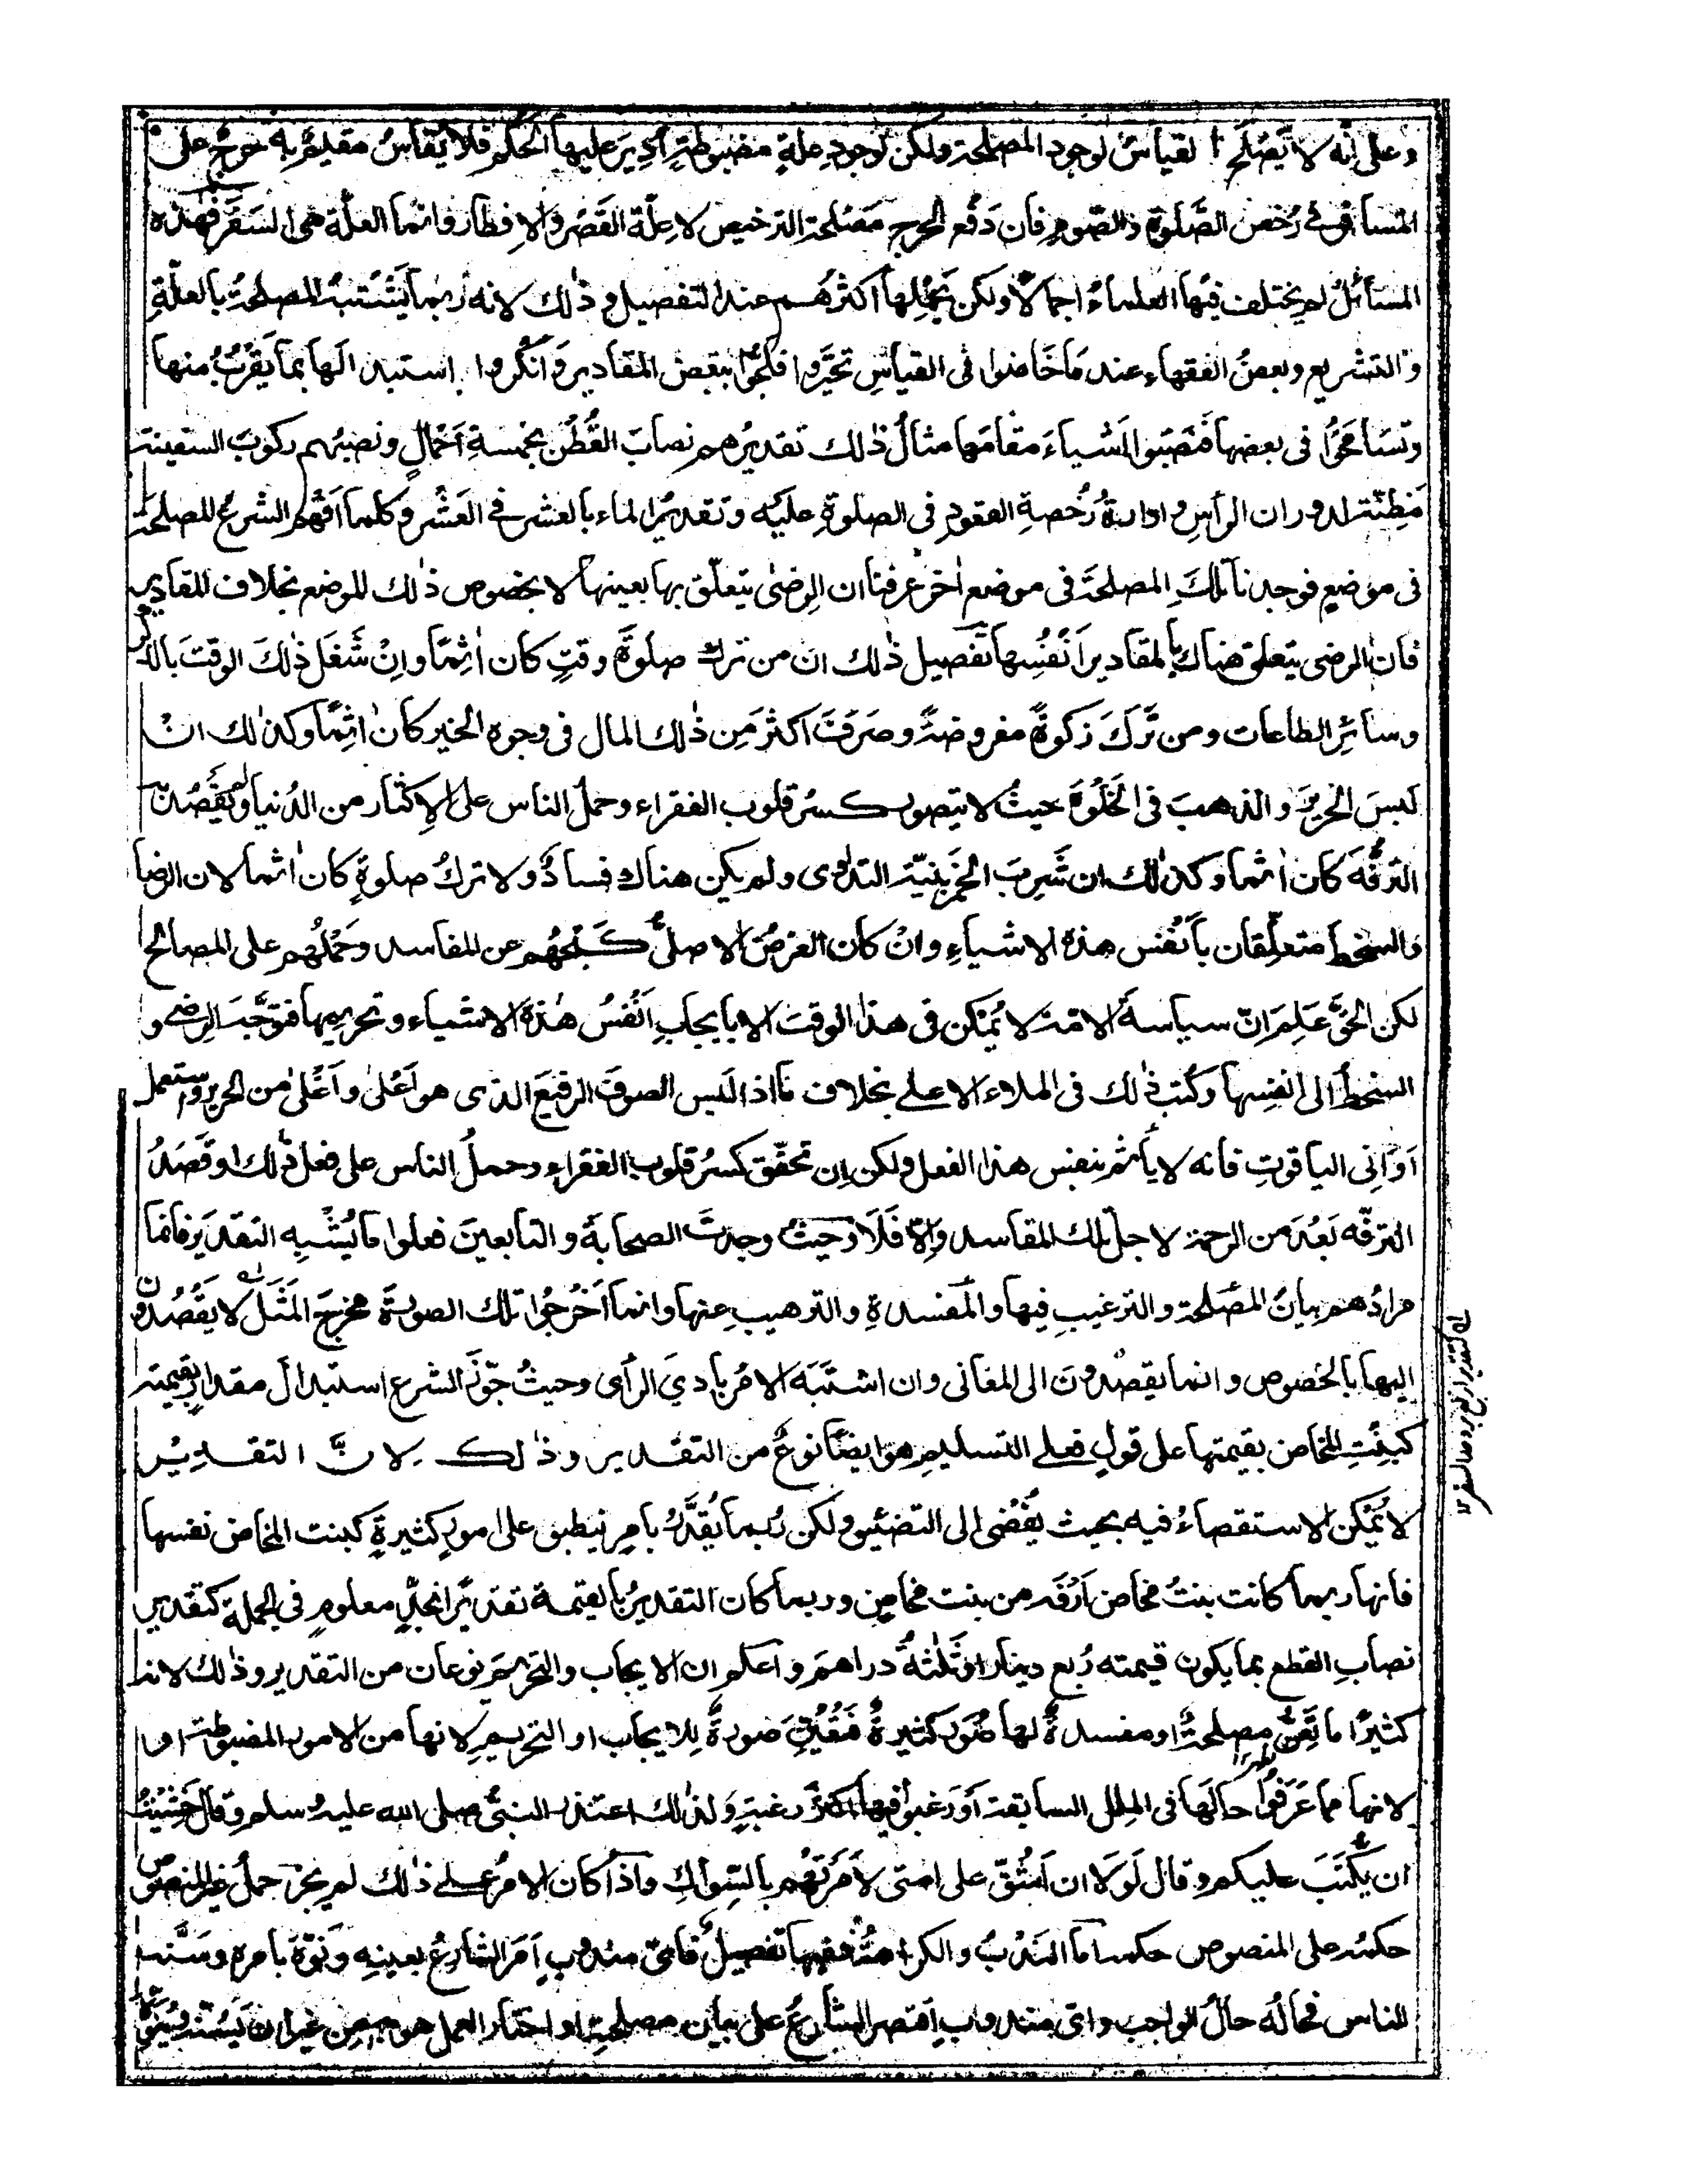 وعلى انّه لا يَصْلَح القياسُ لوجود المصلحة ولكن لوجودِ علةٍ مضبوطةٍ اُدِيرَ عليها الحكم فلا يُقاسُ مقيمٌ به حرجٌ على
المسافر في رُخَص الصَّلوٰة والصَّوم فان دَفْع الحرج مَصْلحة الترخيص لا علّة القَصْر والافطار وانما العلّة هي السَفَر فهذه
المسائلُ لم يختلف فيها العلماءُ اجمالًا ولكن يُهمِلها اكثرُهم عند التفصيل وذٰلك لانه ربما يَشْتبهُ المصلحةُ بالعلّةِ
والتشريع وبعضُ الفقهاء عند مَا خَاضوا في القياسِ تحيَّروا فلجُّوا ببعض المقادير وَانكَروا استبدالَها بما يَقْرُبُ منها
وتسَامَحُوا في بعضها فنَصَبوا اَشياءَ مقامَها مثالُ ذٰلك تقديرُهم نصابَ القُطْن بخمسةِ اَحْمالٍ ونصبُهم ركوبَ السفينة
مَظِنّة لدوران الرأس وادارةُ رُخصةِ القعودِ في الصلوٰةِ عليه وتقديرُ الماء بالعشر في العَشْر وكلما اَفْهَم الشرعُ المصلحةَ
في موضعٍ فوجدنا تلكَ المصلحةَ في موضعٍ اٰخرَ عرفنا ان الرِضىٰ يتعلّق بها بعينها لا بخصوص ذٰلك الموضع بخلاف المقادير
فان الرضى يتعلق هناك بالمقادير اَنْفُسِها تفصيل ذٰلك ان من ترك صلوٰةَ وقتٍ كان اٰثِمًا وانْ شَغَلَ ذٰلكَ الوقتَ بالذكر
وسائرِ الطاعات ومن تَّرَكَ زكوٰةً مفروضةً وصَرَفَ اكثرَ مِن ذٰلك المال في وجوه الخير كان اٰثِمًا وكذٰلك انْ
لَبسَ الحريرَ والذهبَ في الخَلْوَةِ حيثُ لا يتصور كسرُ قلوب الفقراء وحملُ الناس على الاِكثار من الدُنيا ولم يَقْصُدْ به
الترفُّهَ كان اٰثما وكذٰلك ان شَرِبَ الخمر بنيّة التداوى ولم يكن هناك فسادٌ ولا تركُ صلوٰةٍ كان اٰثما لان الرضا
والسخط متعلّقان بأَنْفُس هذه الاشياءِ وانْ كان الغرضُ الاصلىُّ كَبْحُهم عن المفاسد وحَمْلُهم على المصالح
لكن الحقَّ عَلِمَ انّ سياسةَ الامة لا يُمْكن في هذا الوقت الا بايجابِ اَنْفُسِ هٰذه الاشياء وتحريمها فتوجَّه الرضى و
السخطُ الى انفسِها وكُتب ذٰلك في الملاء الاعلے بخلاف ما اذا لَبس الصوفَ الرفيعَ الذى هو اَعْلىٰ واَغْلىٰ من الحرير واستعمل
اَوَانِى الياقوتِ فانه لا يأثم بنفس هذا الفعل ولكن اِن تحقّق كسرُ قلوب الفقراء وحملُ الناس على فعل ذٰلك او قَصَدَ
الترفّه بَعُدَ من الرحمة لاجل تلك المفاسد وَاِلّا فَلَا وحيثُ وجدتَّ الصحابةَ والتابعينَ فعلوا ما يُشْبِه التقديرَ فانما
مرادُهم بيانُ المصْلحة والترغيبِ فيها والمفسدةِ والترهيبِ عنها وانما اَخْرَجُوا تلك الصورةَ مَخرجَ المَثَل لا يَقْصُدون
اليها بالخصوص وانما يقصدون الى المعانى وان اشتَبَهَ الامرُ باديَ الرأى وحيثُ جَوَّزَ الشرع استبدالَ مقدارٍ بقيمته
كبِنْتِ المخاض بقيمتها على قولٍ فعلے التسليمِ هو ايضًا نوعٌ من التقدير وذٰلك لانَّ التقديرَ
لا يُمْكن الاستقصاءُ فيه بحيث يُفْضى الى التضييق ولكن رُبما يُقَدَّرُ بامرٍ ينطبق على امورٍ كثيرةٍ كبنت المخاض نفسها
فانها ربما كانت بنتُ مخاضٍ اَرْفَه من بنت مخاضٍ وربما كان التقديرُ بالقيمة تقديرًا بحدٍّ معلومٍ في الجملة كتقدير
نصابِ القطع بما يكون قيمته رُبع دينار اوثَلٰثةُ دراهمَ واعلم ان الايجاب والتحريمَ نوعان من التقدير وذٰلك لانه
كثيرًا ما تَعِنُّ مصلحةٌ او مفسدةٌ لها صُوَر كثيرةٌ فتُعَيّن صورةٌ للايجاب او التحريم لانها من الامور المضبوطة او
لانها مما عَرَفُوا حالَها فى المِلل السابقة اَوْ رَغبوا فيها اكثرَ رغبةٍ وَلذٰلك اعتذر النبىُّ صلى الله عليه وسلم وقال خَشِيْتُ
ان يُّكْتَبَ عليكم وقال لَوْلَا ان اَشُقَّ على امتى لَاَمَرتُهم بالسِّواكِ واذا كان الامرُ علے ذٰلك لم يجز حملُ غير المنصوص
حكمُه على المنصوص حكمه اما النَدْبُ والكراهةُ ففيها تفصيلٌ فاىّ مندوبٍ اَمَرَ الشارعُ بعينِه ونَوَّهَ بامره وسَنَّه
للناس فحالُه حالُ الواجب واىّ مندوبٍ اِقتصر الشارعُ على بيان مصلحته او اختار العمل هو به مِن غير ان يَسُنَّه ويُنَوِّهَ